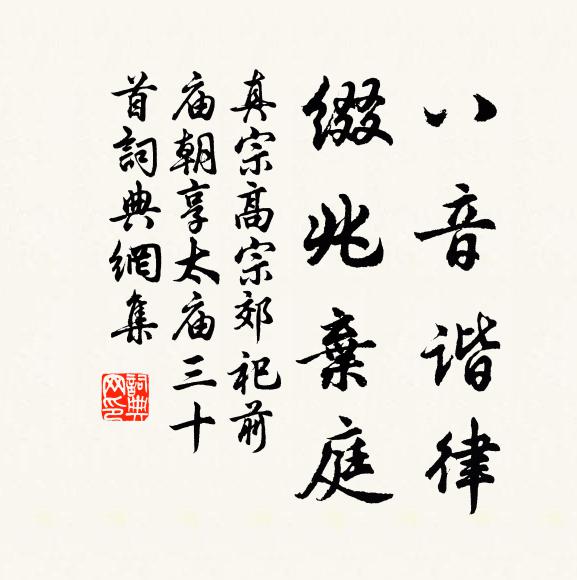 八音谐律
綴兆棄庭
真宗高宗郊祀前
庙朝享太庙三十
首詞典網集
詞典网印